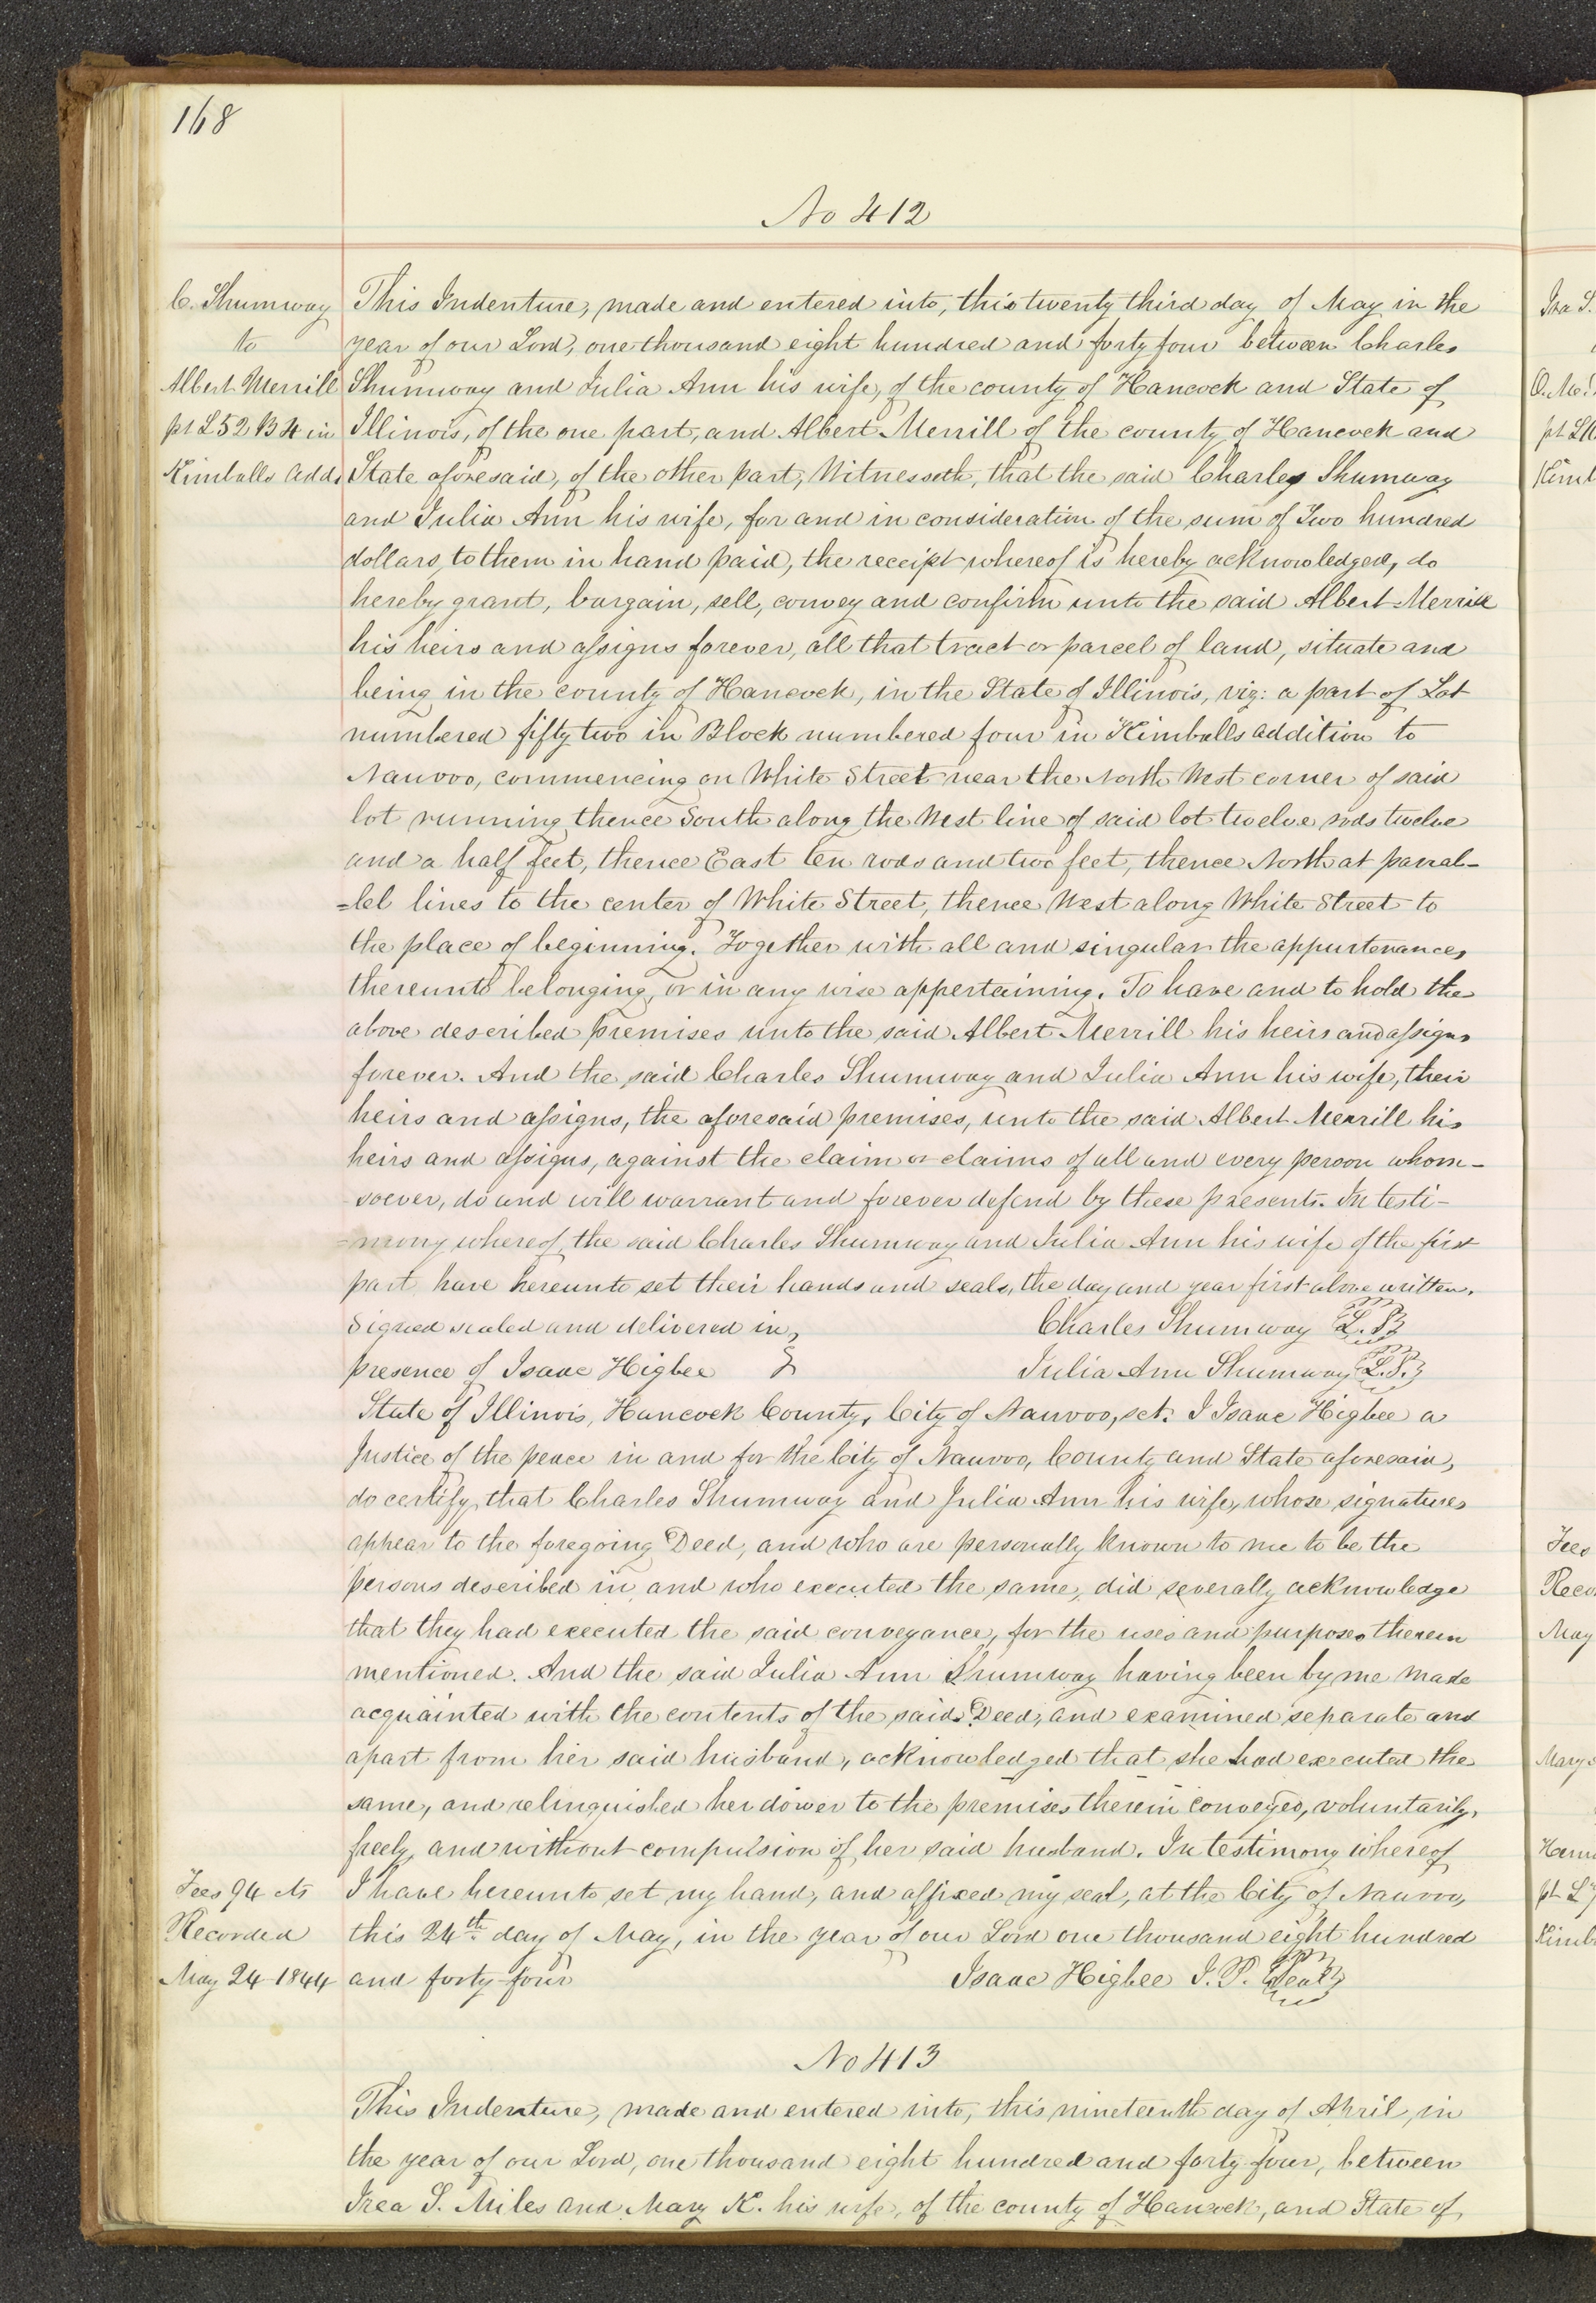 168
No 412
C. Shumway
to
Albert Merrill
pt L 52 B 4 in
Kimballs Add.
This Indenture, made and entered into, this twenty third day of May in the
year of our Lord, one thousand eight hundred and forty four between Charles
Shumway and Julia Ann his wife, of the county of Hancock and State of
Illinois, of the one part, and Albert Merrill of the county of Hancock and
State aforesaid, of the other part, Witnesseth, that the said Charles Shumway
and Julia Ann his wife, for and in consideration of the sum of Two hundred
dollars, to them in hand paid, the receipt whereof is hereby acknowledged, do
hereby grant, bargain, sell, convey and confirm unto the said Albert Merrill
his heirs and assigns forever, all that tract or parcel of land, situate and
being in the county of Hancock, in the State of Illinois, viz: a part of Lot
numbered fifty two in Block numbered four in Kimballs addition to
Nauvoo, commencing on White Street near the North West corner of said
lot running thence South along the West line of said lot twelve rods twelve
and a half feet, thence East ten rods and two feet, thence North at paral-
=lel lines to the center of White Street, thence West along White Street to
the place of beginning. Together with all and singular the appurtenances
thereunto belonging, or in any wise appertaining. To have and to hold the
above described premises unto the said Albert Merrill his heirs and assigns
forever. And the said Charles Shumway and Julia Ann his wife, their
heirs and assigns, the aforesaid premises, unto the said Albert Merrill his
heirs and assigns, against the claim or claims of all and every person whom-
soever, do and will warrant and forever defend by these presents. In testi-
=mony whereof, the said Charles Shumway and Julia Ann his wife of the first
part, have hereunto set their hands and seals, the day and year first above written.
Signed sealed and delivered in Charles Shumway L.S.
presence of Isaac Higbee Julia Ann Shumway L.S.
State of Illinois, Hancock County, City of Nauvoo, sct. I Isaac Higbee a
Justice of the peace in and for the City of Nauvoo, County and State aforesaid,
do certify, that Charles Shumway and Julia Ann his wife, whose signatures
appear to the foregoing Deed, and who are personally known to me to be the
persons described in, and who executed the same, did severally acknowledge
that they had executed the said conveyance, for the uses and purposes therein
mentioned. And the said Julia Ann Shumway having been by me made
acquainted with the contents of the said Deed, and examined separate and
apart from her said husband, acknowledged that she had executed the
same, and relinquished her dower to the premises therein conveyed, voluntarily,
freely, and without compulsion of her said husband. In testimony whereof
I have hereunto set my hand, and affixed my seal, at the City of Nauvoo,
this 24th day of May, in the year of our Lord one thousand eight hundred
and forty four Isaac Higbee J. P. Seal
Fees 94 cts
Recorded
May 24 1844
No 413
This Indenture, made and entered into, this nineteenth day of April, in
the year of our Lord, one thousand eight hundred and forty four, between
Irea S. Miles and Mary K. his wife, of the county of Hancock, and State of
Ira S.
pt L
Fees
Reco
May
Mary
pt L
Kimb